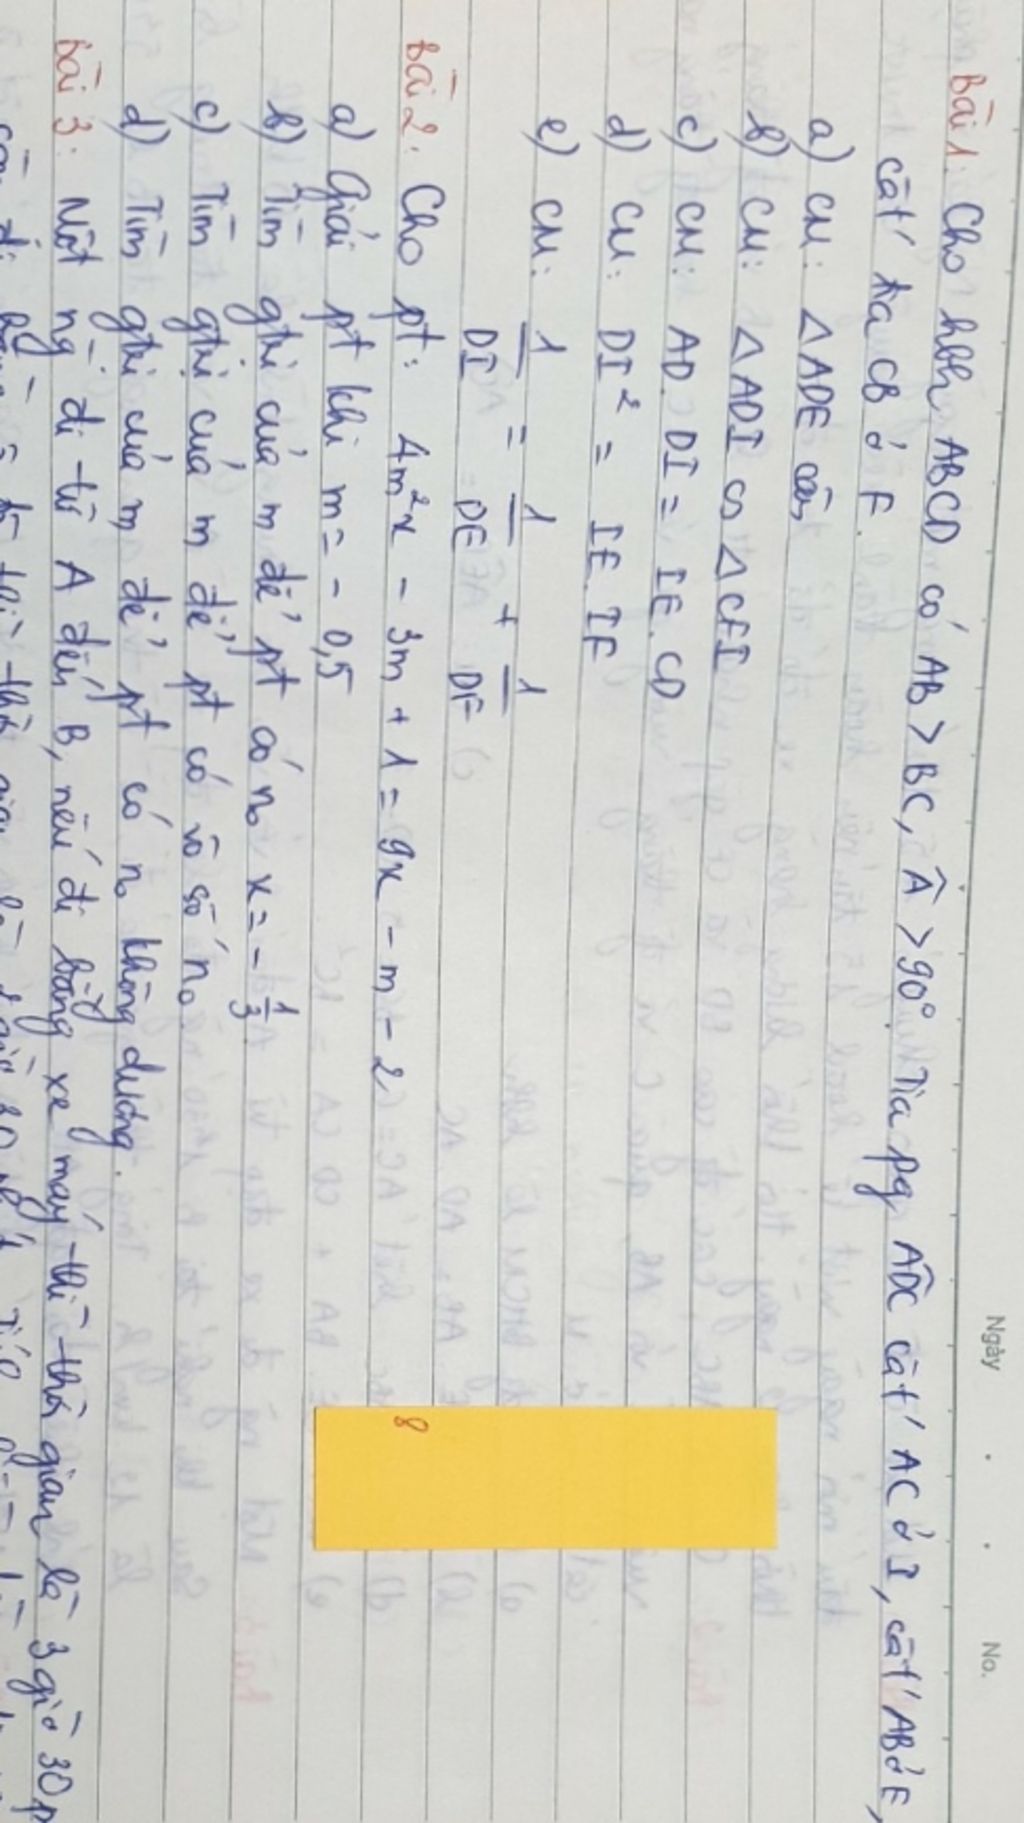 Ngày . . No.
Bài 1: Cho hbh ABCD có AB > BC, Â > 90°. Tia pg ADC cắt AC ở I, cắt AB ở E,
cắt tia CB ở F.
a) CM: △ADE cân
b) CM: △ADI ∽ △CFI
c) CM: AD.DI = IE.CD
d) CM: DI² = IE.IF
e) CM: 1/DI = 1/DE + 1/DF
Bài 2: Cho pt: 4m²x - 3m + 1 = 9x - m - 2
a) Giải pt khi m = - 0,5
b) Tìm gtri của m để pt có n₀ x = - 1/3
c) Tìm gtri của m để pt có vô số n₀
d) Tìm gtri của m để pt có n₀ không dương.
Bài 3: Một ng đi từ A đến B, nếu đi bằng xe máy thì thời gian là 3 giờ 30p
8